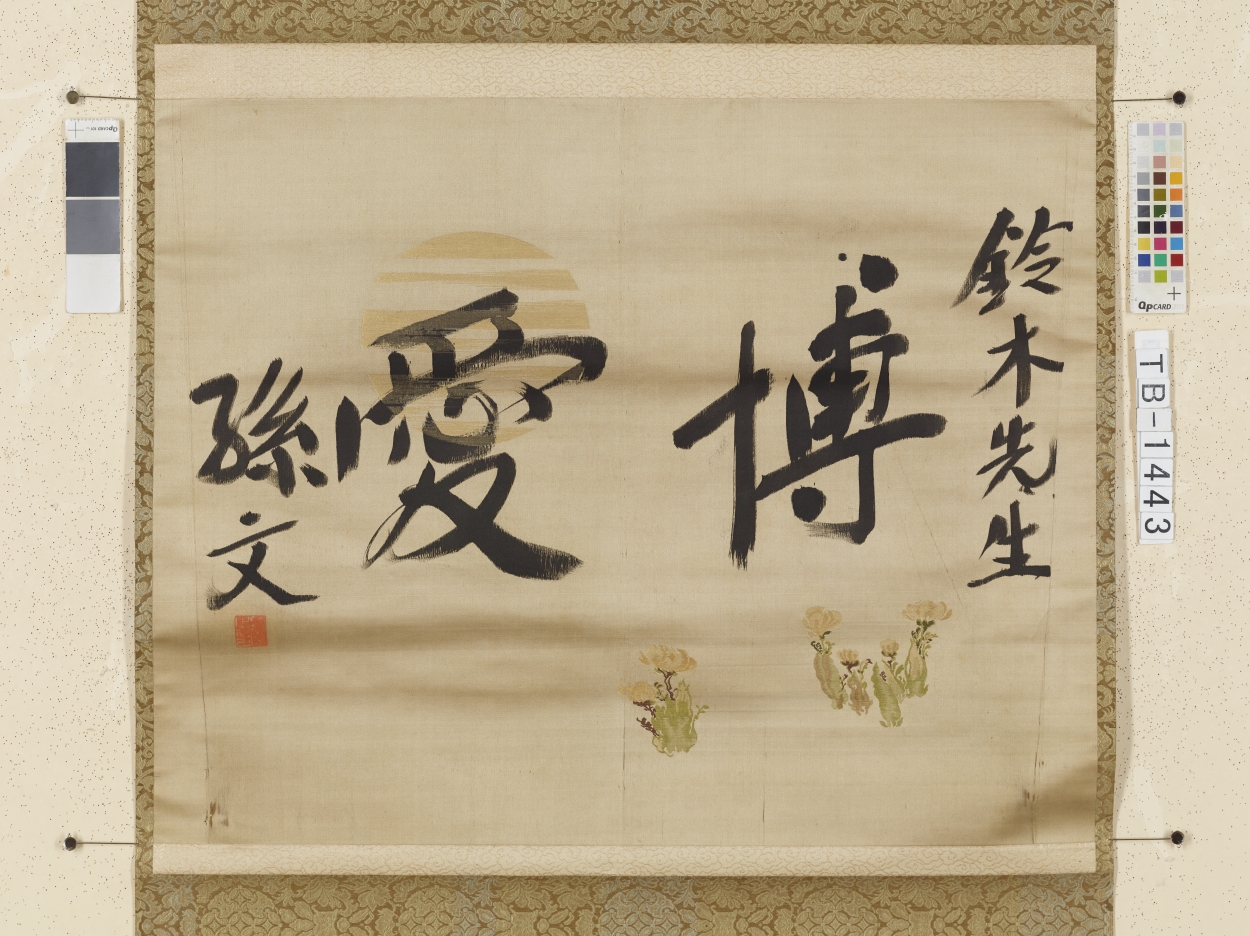 鈴木先生
博愛
孫文
TB-1443
QpCARD